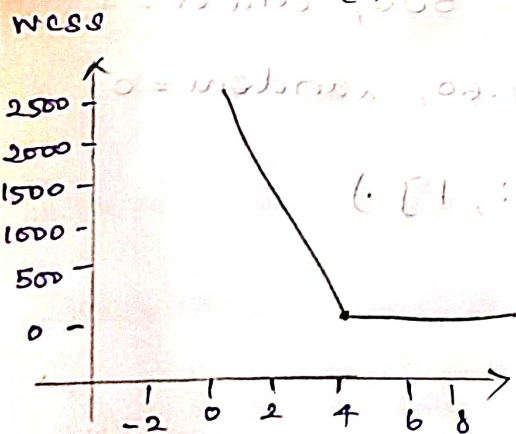 WCSS
2500
2000
1500
1000
500
0
-2 0 2 4 6 8